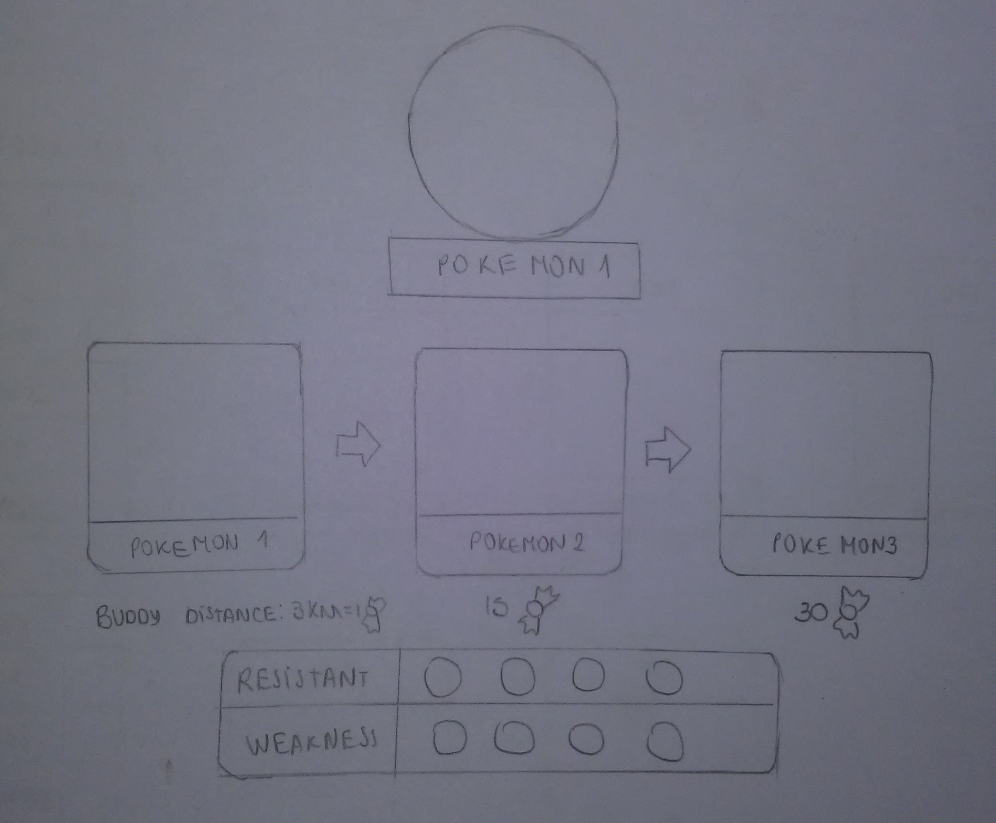 POKEMON 1
POKEMON 1
POKEMON 2
POKEMON3
BUDDY DISTANCE: 3KM=1
15
30
RESISTANT
WEAKNESS